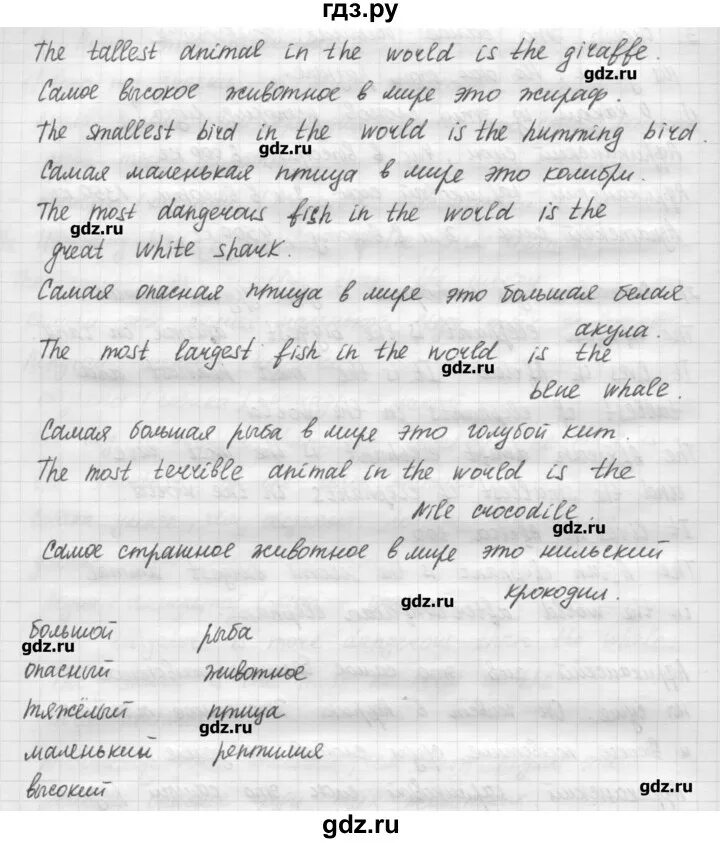 гдз.ру
The tallest animal in the world is the giraffe.
gdz.ru
Самое высокое животное в мире это жираф.
The smallest bird in the world is the humming bird.
gdz.ru
Самая маленькая птица в мире это колибри.
The most dangerous fish in the world is the
gdz.ru
great white shark.
Самая опасная птица в мире это большая белая
акула.
The most largest fish in the world is the
gdz.ru
blue whale.
Самая большая рыба в мире это голубой кит.
The most terrible animal in the world is the
Nile crocodile.
gdz.ru
Самое страшное животное в мире это нильский
gdz.ru
крокодил.
большой рыба
gdz.ru
опасный животное
тяжёлый птица
gdz.ru
маленький рептилия
высокий
gdz.ru
gdz.ru